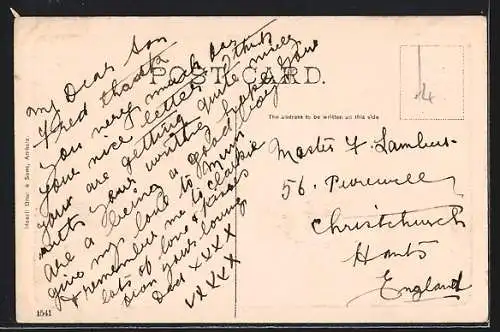 My Dear Son
Fred thank
you very much for
your nice letter I think
your are getting quite nice
with your writing hope you
are a being a good boy
give my love to Mum
& remember me to Clarkie
lots of love & kisses
from your loving
Dad XXXX
XXXX
POST CARD.
The address to be written on this side
Master F. Lambert
56. Purewell
Christchurch
Hants
England
1541